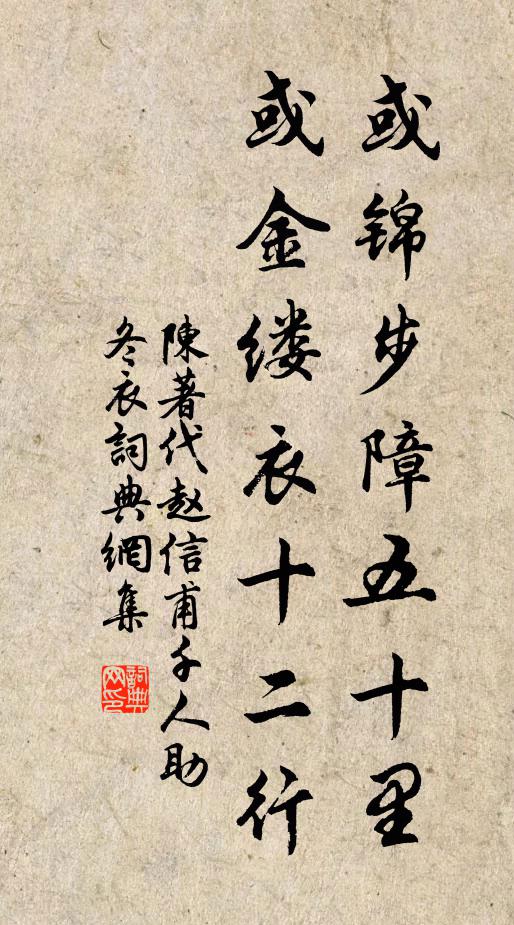 或锦步障五十里
或金缕衣十二行
陳著代赵信甫千人助
冬衣詞典網集
詞典网印